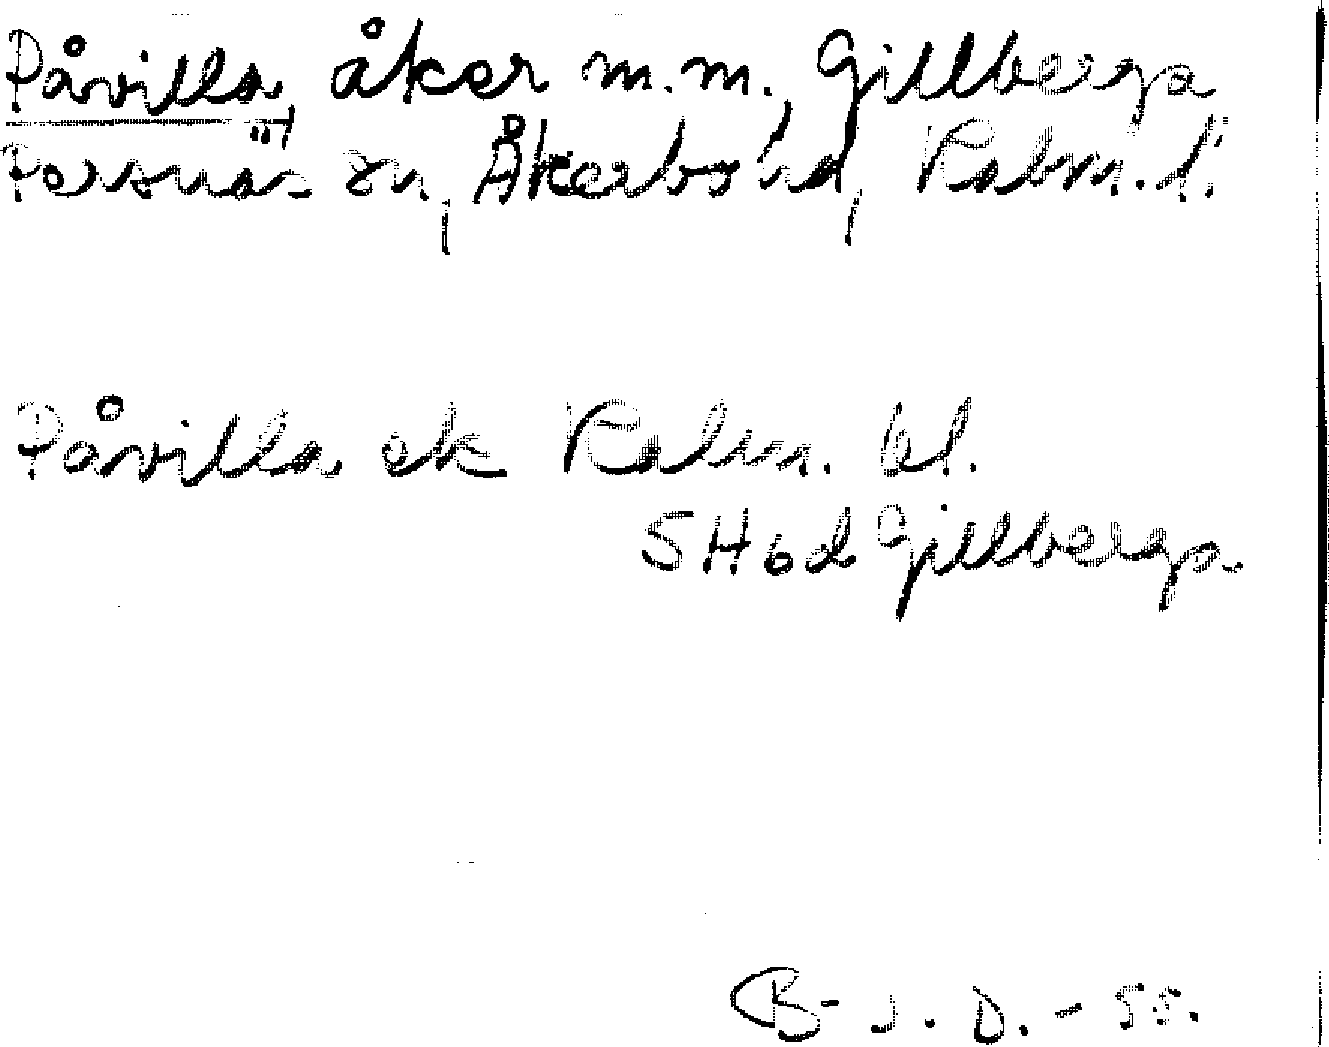 Påvilla, åker m.m., Gillberga
Persnäs sn, Åkerbo hd, Kalm. l.
Påvilla ek Kalm. bl.
5H6d Gillberga
B-J. D. - 55.